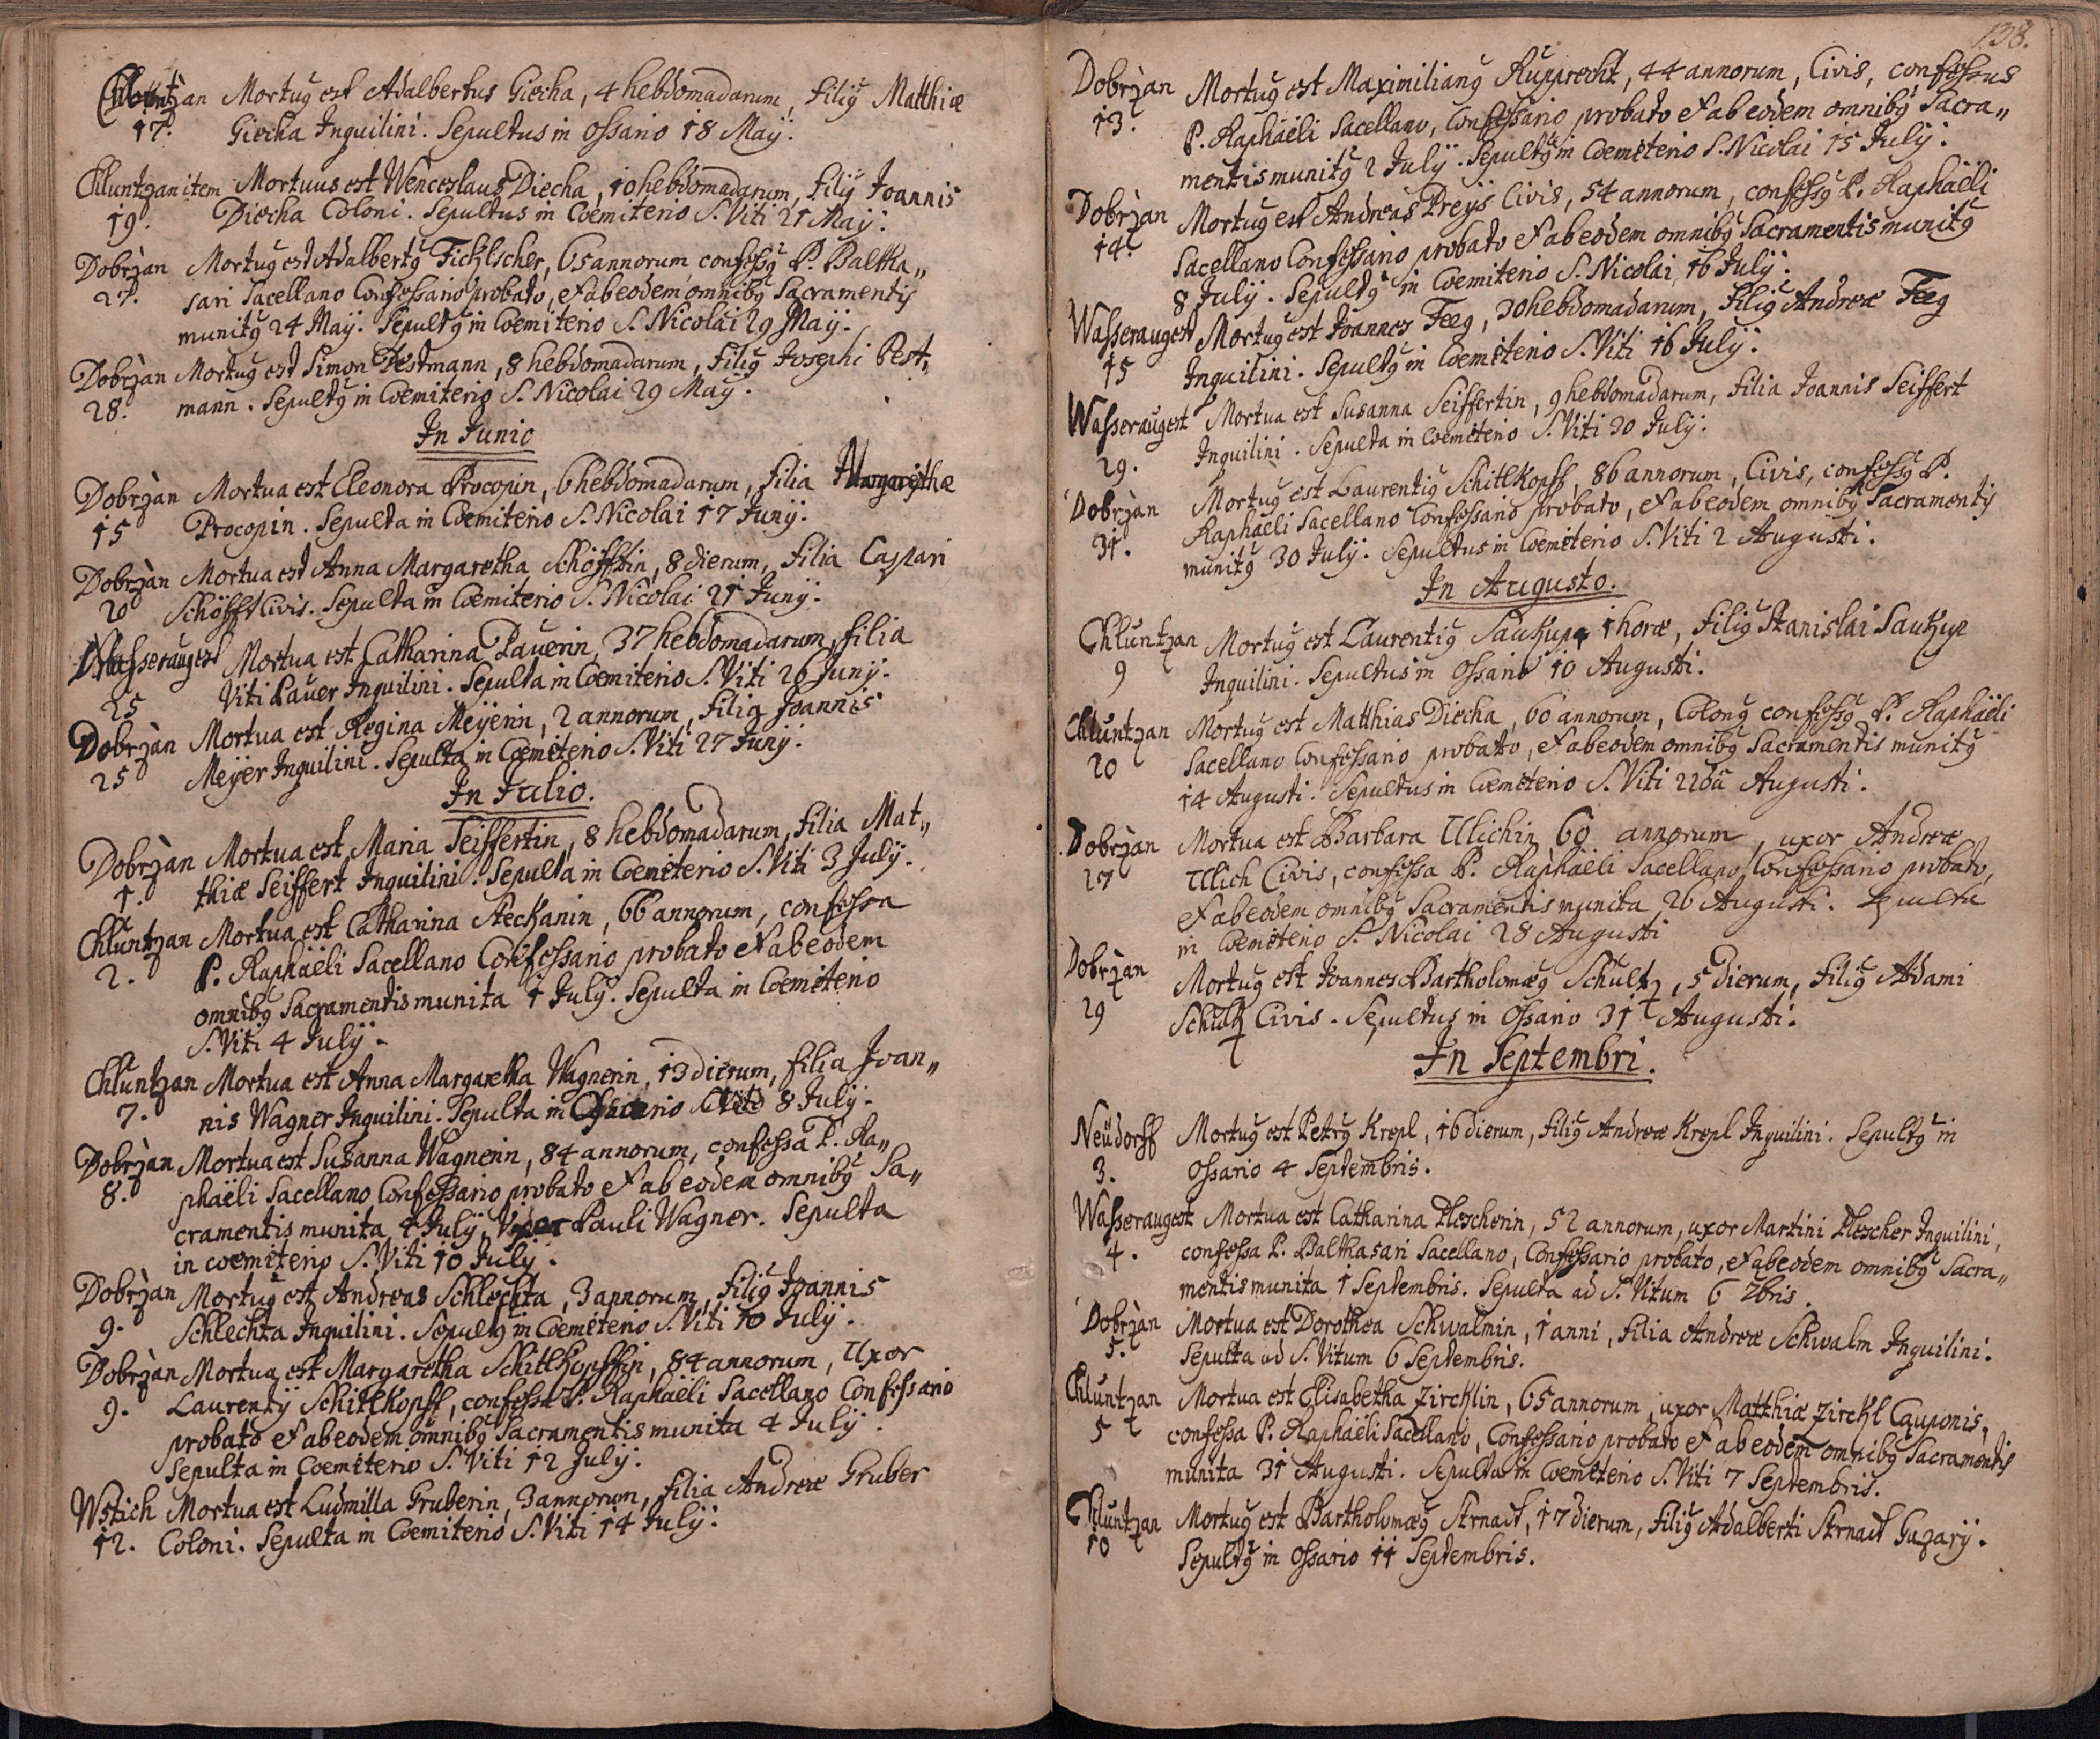 Chluntzan Mortuꝯ est Adalbertus Giecha, 4 hebdomadarum, filiꝯ Matthiæ
17. Giecha Inquilini. Sepultus in ossario 18 Maÿ.
Chluntzan item Mortuus est Wenceslaus Diecha, 10 hebdomadarum, filiꝯ Joannis
19. Diecha Coloni. Sepultus in Coemiterio S. Viti 21 Maÿ.
Dobrzan Mortuꝯ est Adalbertꝯ Ficklscher, 65 annorum, confessꝯ P. Baltha„
27. sari Sacellano Confessario probato, et ab eodem omnibꝯ Sacramentis
munitꝯ 24 Maÿ. Sepultꝯ in Coemiterio S. Nicolai 29 Maÿ.
Dobrzan Mortuꝯ est Simon Pestmann, 8 hebdomadarum, filiꝯ Josephi Pest„
28. mann. Sepultꝯ in Coemiterio S. Nicolai 29 Maÿ.
In Junio
Dobrzan Mortua est Eleonora Procopin, 6 hebdomadarum, filia Margarethæ
15 Procopin. Sepulta in Coemiterio S. Nicolai 17 Junÿ.
Dobrzan Mortua est Anna Margaretha Schöfftin, 8 dierum, filia Caspari
20 Schöfft Civis. Sepulta in Coemiterio S. Nicolai 21 Junÿ.
Wasseraugest Mortua est Catharina Pauerin, 37 hebdomadarum, filia
25 Viti Pauer Inquilini. Sepulta in Coemiterio S. Viti 26 Junÿ.
Dobrzan Mortua est Regina Meÿerin, 2 annorum, filia Joannis
25 Meÿer Inquilini. Sepulta in Coemeterio S. Viti 27 Junÿ.
In Julio.
Dobrzan Mortua est Maria Seiffertin, 8 hebdomadarum, filia Mat„
1. thiæ Seiffert Inquilini. Sepulta in Coemeterio S. Viti 3 Julÿ.
Chluntzan Mortua est Catharina Steckanin, 66 annorum, confessa
2. P. Raphaëli Sacellano Confessario probato et ab eodem
omnibꝯ Sacramentis munita 1 Julÿ. Sepulta in Coemeterio
S. Viti 4 Julÿ.
Chluntzan Mortua est Anna Margaretha Wagnerin, 13 dierum, filia Joan„
7. nis Wagner Inquilini. Sepulta in 8 Julÿ.
Dobrzan Mortua est Susanna Wagnerin, 84 annorum, confessa P. Ra„
8. phaëli Sacellano Confessario probato et ab eodem omnibꝯ Sa„
cramentis munita 4 Julÿ, Pauli Wagner. Sepulta
in coemiterio S. Viti 10 Julÿ.
Dobrzan Mortuꝯ est Andreas Schlechta, 3 annorum, filiꝯ Joannis
9. Schlechta Inquilini. Sepultꝯ in Coemeterio S. Viti 10 Julÿ.
Dobrzan Mortua est Margaretha Schitlkopffin, 84 annorum, Uxor
9. Laurentÿ Schitlkopff, confessa P. Raphaëli Sacellano Confessario
probato et ab eodem omnibꝯ Sacramentis munita 4 Julÿ.
Sepulta in Coemeterio S. Viti 12 Julÿ.
Wstich Mortua est Ludmilla Gruberin, 3 annorum, filia Andreæ Gruber
12. Coloni. Sepulta in Coemiterio S. Viti 14 Julÿ.
138.
Dobrzan Mortuꝯ est Maximilianꝯ Rupprecht, 44 annorum, Civis, confessus
13. P. Raphaëli Sacellano, Confessario probato et ab eodem omnibꝯ Sacra„
mentis munitꝯ 2 Julÿ. Sepultꝯ in Coemeterio S. Nicolai 15 Julÿ.
Dobrzan Mortuꝯ est Andreas Preÿs Civis, 54 annorum, confessꝯ P. Raphaëli
14. Sacellano Confessario probato et ab eodem omnibꝯ Sacramentis munitꝯ
8 Julÿ. Sepultꝯ in Coemiterio S. Nicolai 16 Julÿ.
Wasseraugest Mortuꝯ est Joannes Feeg, 30 hebdomadarum, filiꝯ Andreæ Feeg
15 Inquilini. Sepultꝯ in Coemeterio S. Viti 16 Julÿ.
Wasseraugest Mortua est Susanna Seiffertin, 9 hebdomadarum, filia Joannis Seiffert
29. Inquilini. Sepulta in Coemeterio S. Viti 30 Julÿ.
Dobrzan Mortuꝯ est Laurentiꝯ Schitlkopff, 86 annorum, Civis, confessꝯ P.
31. Raphaëli Sacellano Confessario probato, et ab eodem omnibꝯ Sacramentis
munitꝯ 30 Julÿ. Sepultus in Coemeterio S. Viti 2 Augusti.
In Augusto.
Chluntzan Mortuꝯ est Laurentiꝯ Saukup, 1 horæ, filiꝯ Stanislai Saukup
9 Inquilini. Sepultus in ossario 10 Augusti.
Chluntzan Mortuꝯ est Matthias Diecha, 60 annorum, Colonꝯ confessꝯ P. Raphaëli
20 Sacellano Confessario probato, et ab eodem omnibꝯ Sacramentis munitꝯ
14 Augusti. Sepultus in Coemeterio S. Viti 22da Augusti.
Dobrzan Mortua est Barbara Ulichin, 60 annorum, uxor Andreæ
27 Ulich Civis, confessa P. Raphaëli Sacellano Confessario probato,
et ab eodem omnibꝯ Sacramentis munita 26 Augusti. Sepulta
in Coemeterio S. Nicolai 28 Augusti
Dobrzan Mortuꝯ est Joannes Bartholomæꝯ Schultz, 5 dierum, filiꝯ Adami
29 Schultz Civis. Sepultus in ossario 31 Augusti.
In Septembri.
Neüdorff Mortuꝯ est Petrꝯ Krepl, 16 dierum, filiꝯ Andreæ Krepl Inquilini. Sepultꝯ in
3. ossario 4 Septembris.
Wasseraugest Mortua est Catharina Plescherin, 52 annorum, uxor Martini Plescher Inquilini,
4. confessa P. Balthasari Sacellano, Confessario probato, et ab eodem omnibꝯ Sacra„
mentis munita 1 Septembris. Sepulta ad S. Vitum 6 7bris.
Dobrzan Mortua est Dorothea Schwalmin, 1 anni, filia Andreæ Schwalm Inquilini.
5. Sepulta ad S. Vitum 6 Septembris.
Chluntzan Mortua est Elisabetha Zircklin, 65 annorum, uxor Matthiæ Zirckl Cauponis,
5 confessa P. Raphaëli Sacellano, Confessario probato et ab eodem omnibꝯ Sacramentis
munita 31 Augusti. Sepulta in Coemeterio S. Viti 7 Septembris.
Chluntzan Mortuꝯ est Bartholomæꝯ Strnad, 17 dierum, filiꝯ Adalberti Strnad Gazarÿ.
10 Sepultꝯ in ossario 11 Septembris.